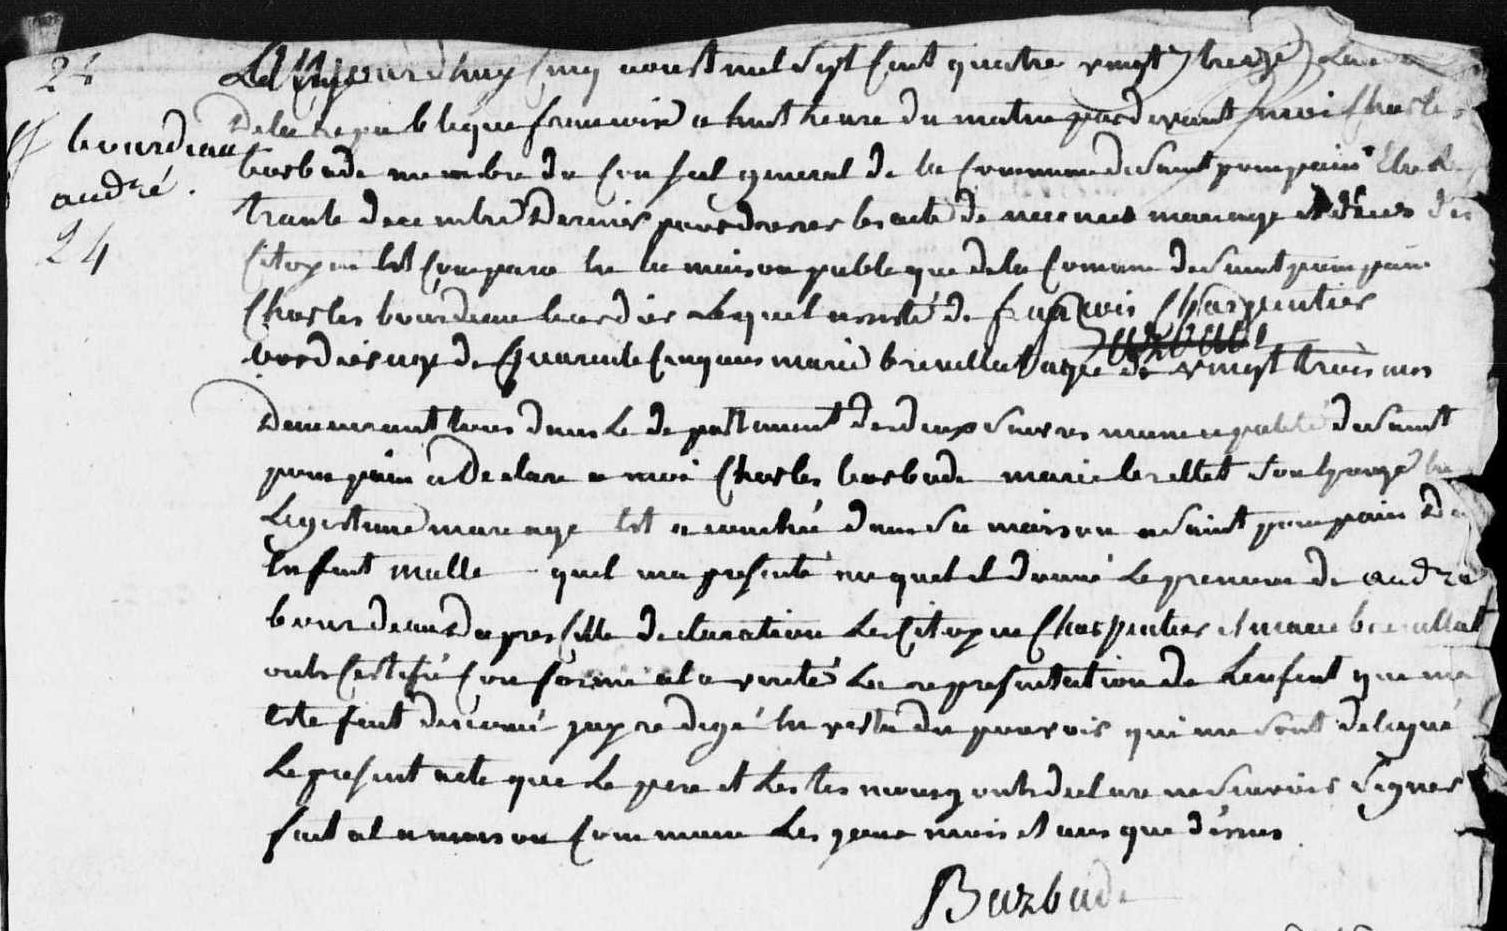 24
bourdeau
andré.
24
Aujourdhuy cinq aoust mil sept cent quatre vingt treize
dela republique francoise a huit heure du matin pardevant moi Charles
barbade membre du Conseil general de la Commune de Saint pompain Elue le
trante decembre dernier pour dresser les acte de naisence mariage et déces des
Citoyen Est Comparu en la maison publique de la Comune de Saint pompain
Charles bourdeau bordier Lequel assisté de francois Charpentier
bordier agé de Quarente Cinq ans marie brevillat agée de vingt trois ans
Demeurant tous dans Le departement des deux Sevres municipalité de Saint
pompain a Declare a moi Charles barbade marie Son Epouze En
Legestime mareage Est acouchée dans Sa maison a Saint pompain
Enfant malle quel ma presenté auquel il donné Le prenom de andré
bourdeau dapres Cette declaration Les Citoyen Charpentier et marie brevillat
onts Certifié Conforme a la verité La representation de Lenfent que ma
Este fait denomé jay redigé En vertu du pouvoir qui me Sont delegué
Le present acte que Le pere et Les tesmoings onts declare ne Savoir Signer
fait a la maison Commune Les jour mois et ans que dessus.
Barbade